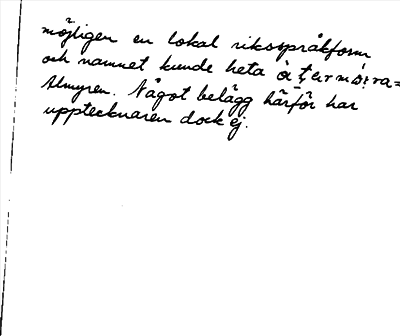 möjligen en lokal riksspråkform
och namnet kunde heta
Almyren. Något belägg härför har
upptecknaren dock ej.